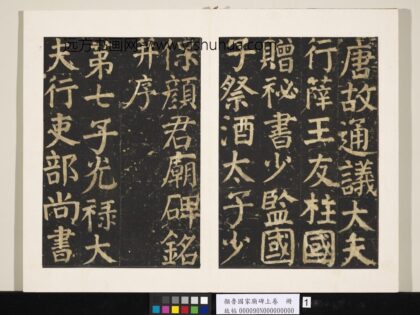 唐故通議大夫
行薛王友柱國
贈祕書少監國
子祭酒太子少
保顏君廟碑銘
并序
第七子光祿大
夫行吏部尚書
顏魯國家廟碑上卷 冊
故帖 000090N000000000
1